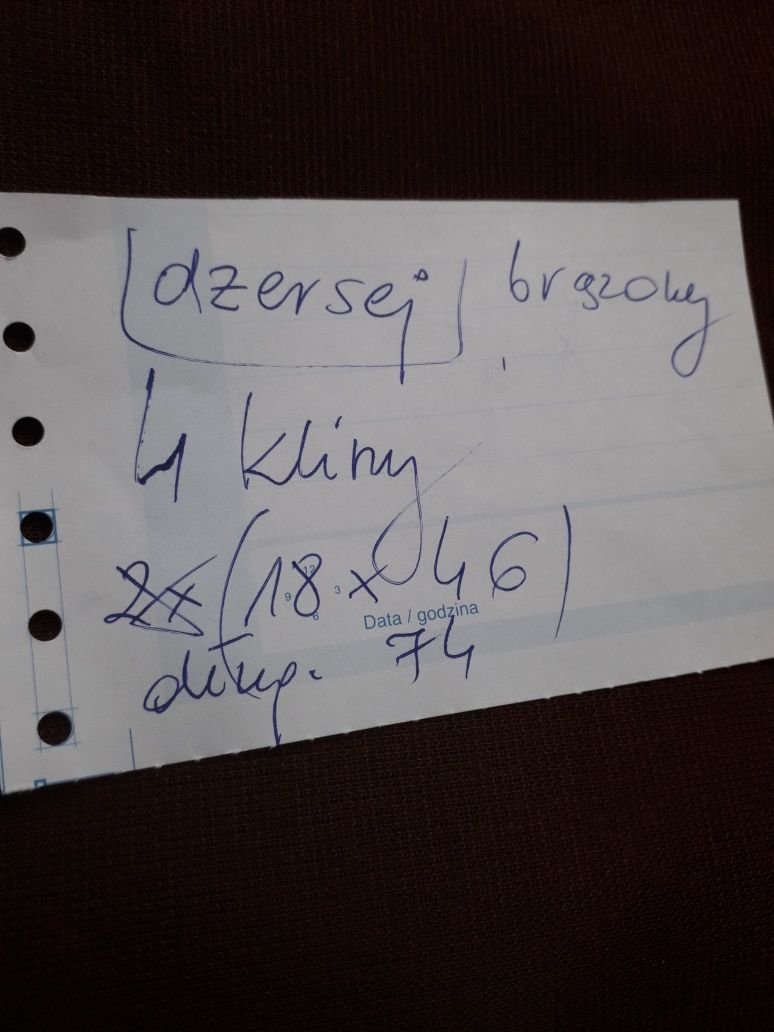 dzersej brązowy
4 kliny
2x (18 x 46)
12
9 3
6
Data / godzina
dług. 74